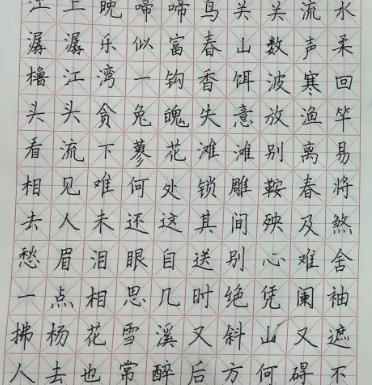 江上晚啼啼鸟关关流水
潺潺乐似富春山数声柔
橹江湾一钩香饵波寒回
头头贪兔魄失意放渔竿
看流下蓼花滩滩别离易
相见难何处锁雕鞍春将
去人未还这其间殃及煞
愁眉泪眼自送别心难舍
一点相思几时绝凭阑袖
拂杨花雪溪又斜山又遮
人去也常醉后方何碍不